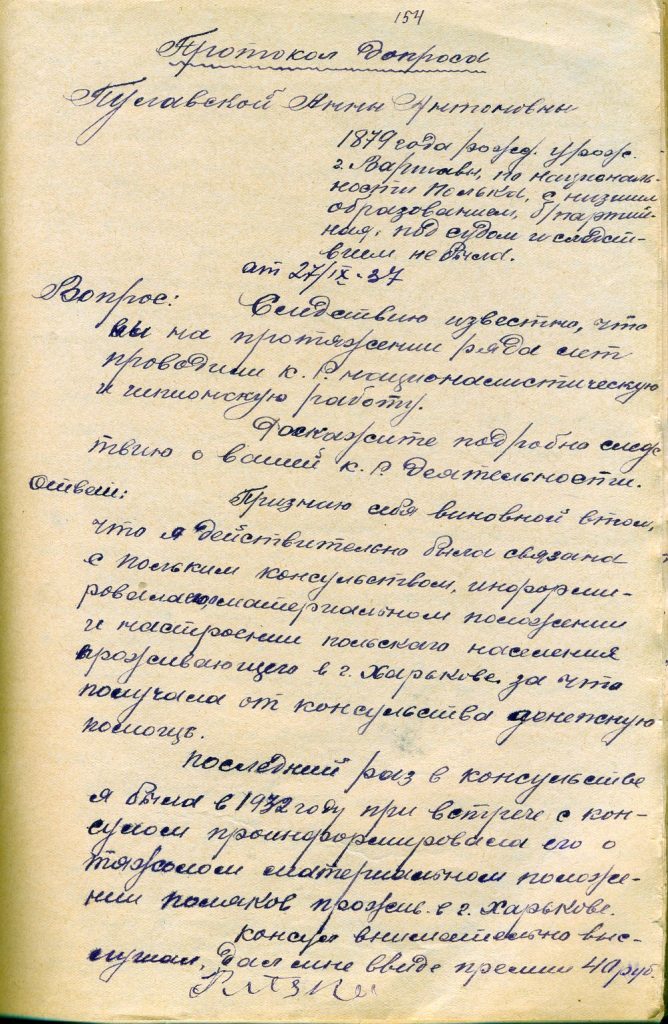 154
Протокол допроса
Пуславской Анны Антоновны
1879 года рожд. урож.
г. Варшавы, по националь-
ности полька, с низшим
образованием, б/партий-
ная, под судом и следст-
вием не была.
от 27/IX-37
Вопрос: Следствию известно, что
вы на протяжении ряда лет
проводили к.р. националистическую
и шпионскую работу.
Раскажите подробно следс
твию о вашей к.р. деятельности.
Ответ: Признаю себя виновной втом,
что я действительно была связана
с польким консульством, информи-
ровала о материальном положении
и настроении польскаго населения
проживающего в г. Харькове. за что
получала от консульства денежную
помощь.
последний раз в консульстве
я была в 1932 году при встрече с кон-
сулом проинформировала его о
тяжолом материальном положе-
нии поляков прожив. в г. Харькове.
консул внимательно выс-
лушал, дал мне ввиде премии 40 руб.